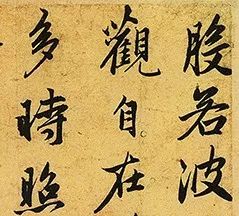 般若波
觀自在
多時照